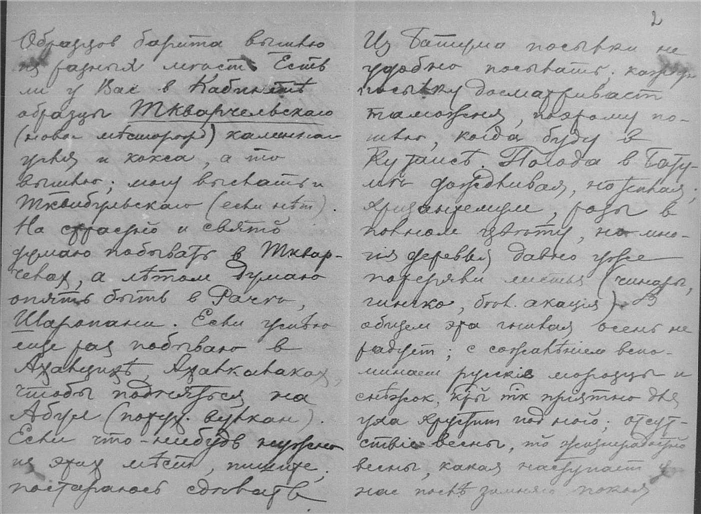 Образцов барита вышлю
из разных мѣстъ. Есть
ли у Вас в Кабинетѣ
образцы Ткварчельскаго
(новое мѣсторожд) каменнаго
угля и кокса, а то
вышлю; могу выслать и
Тквибульскаго (если нѣт).
На страстно и свято
думаю побывать в Тквар-
челах, а лѣтом думаю
опять быть в Рачѣ,
Шаропани. Если успѣю
еще раз побываю в
Ахалкалаках,
чтобы подняться на
Абул (потух. вулкан).
Если что-нибудь нужно
из этих мѣст, пишите,
постараюсь сдѣлать.
2
Из Батума посылки не
удобно посылать: каждую
посылку досматривает
таможня, поэтому по-
шлю, когда буду в
Кутаисѣ. Погода в Бату-
мѣ дождливая, но теплая;
хризантемы, розы в
полном цвѣту, но мно-
гія деревья давно уже
потеряли листья (чинары,
гинкго, бѣл. акація). В
общем эта гнилая осень не
радует; с сожалѣніем вспо-
минаем русскіе морозцы и
снѣжок, кот. так пріятно для
уха хрустит под ногой; отсут-
ствіе весны, той
весны, какая наступает у
нас послѣ зимняго покоя